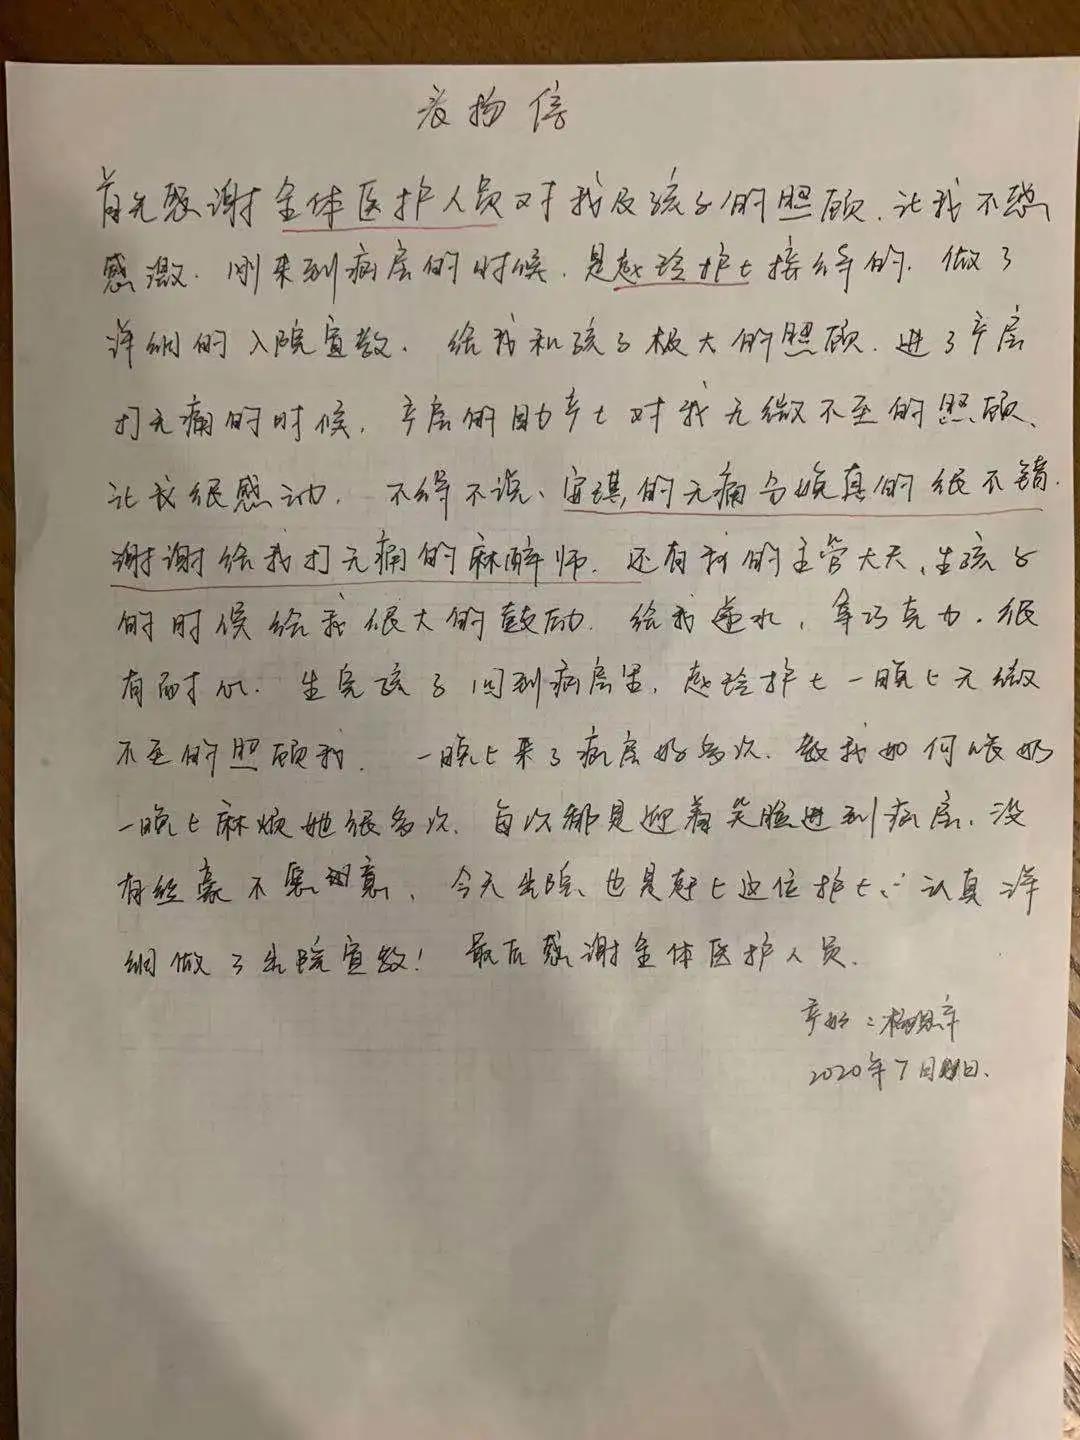 表扬信
首先感谢全体医护人员对我及孩子的照顾、让我不甚
感激. 刚来到病房的时候. 是赵玲护士接待的. 做了
详细的入院宣教. 给我和孩子极大的照顾. 进了产房
打无痛的时候. 产房的助产士对我无微不至的照顾、
让我很感动. 不得不说、安琪的无痛分娩真的很不错.
谢谢给我打无痛的麻醉师. 还有我的主管大夫、生孩子
的时候给我很大的鼓励. 给我递水, 拿巧克力. 很
有耐心. 生完孩子回到病房里, 赵玲护士一晚上无微
不至的照顾我. 一晚上来了病房好多次. 教我如何喂奶
一晚上麻烦她很多次. 每次都是迎着笑脸进到病房、没
有丝毫不愿意. 今天出院、也是赶上这位护士、认真详
细做了出院宣教! 最后感谢全体医护人员.
产妇:
2020年7月 日.